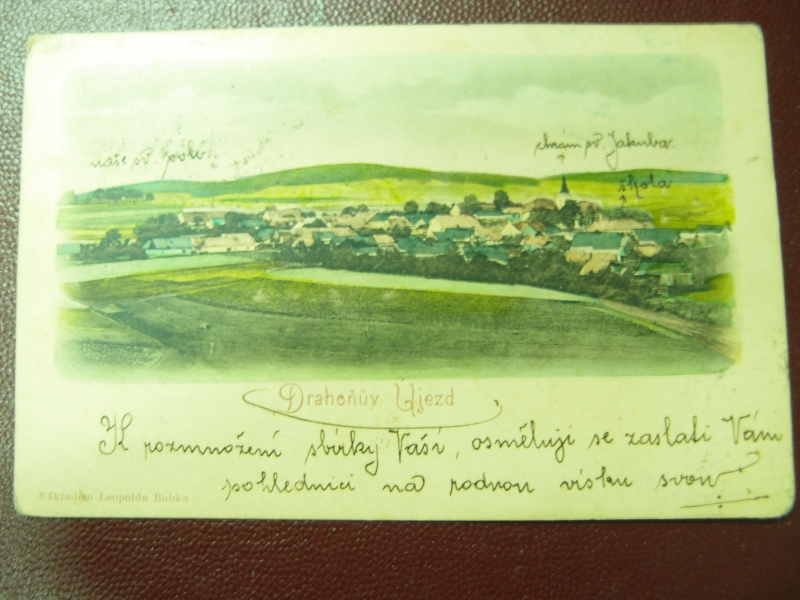 naše sv. pole
chram sv. Jakuba.
škola
Drahoňův Ujezd
K rozmnožení sbírky Vaší, osměluji se zaslati Vám
pohlednici na rodnou vísku svou
Nákladem Leopolda Bobka